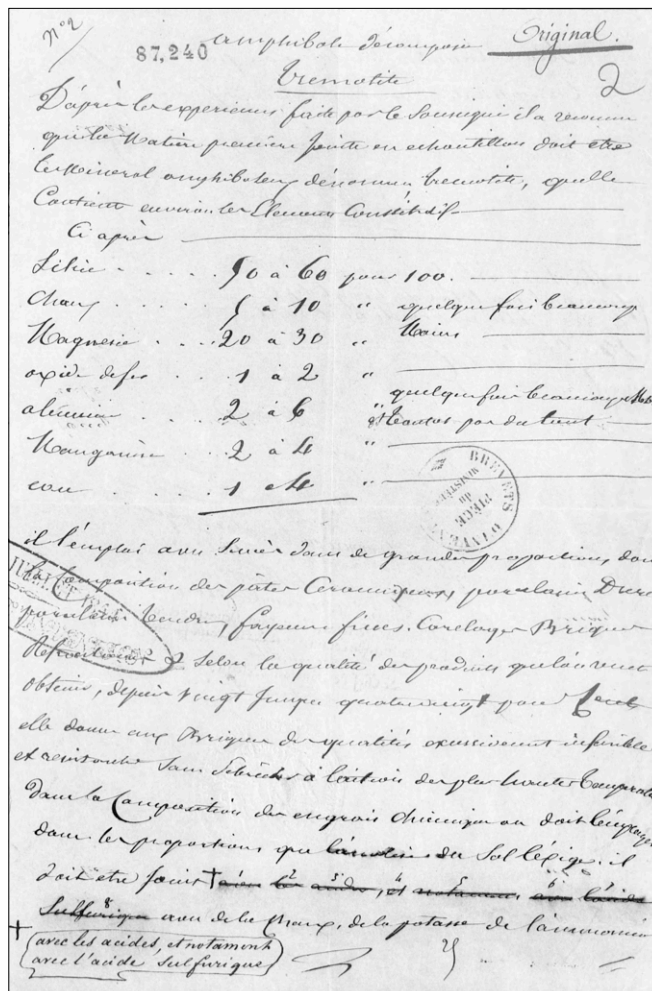 N° 2
Original.
87,240
amphibole décomposée
2
Tremolite
D'après les experiences faite par le Soussigné il a reconnu
que la Matière première jointe en echantillon doit etre
le Mineral amphiboleux dénommé tremolite, quelle
Contient environ les Elements Constitutifs
Ci après
Silice . . . . 50 à 60 pour 100.
chaux . . . . 5 à 10 " quelque fois beaucoup
Magnesie . . . 20 à 30 " Moins
oxide de fer . . . 1 à 2 "
alumine . . . . 2 à 6 " quelque fois beaucoup
et Mantes pas du tout
Manganèse . . 2 à 4 "
eau . . . . 1 à 4 "
BREVETS
D'INVENTION
PIÈCE
du
JUILLET
il l'emploi avec Succès dans de grandes proportions, dans
la Composition des pâtes Ceramiques, porcelaine Dure
porcelaine tendre, fayence fines. Carelages Briques
selon la qualité des produits que l'on veut
obtenir, depuis vingt jusqu'a quatre vingt pour Cent
elle donne aux Briques des qualités excessivement infusible
et resistante Sans à l'action des plus hautes
Dans la Composition des engrais chimique on doit
dans les proportions que du Sol l'éxige. il
doit etre joint + avec les acides, et notament avec l'acide
Sulfurique avec de la chaux, de la potasse de l'ammoniac
+ (avec les acides, et notament
avec l'acide sulfurique)